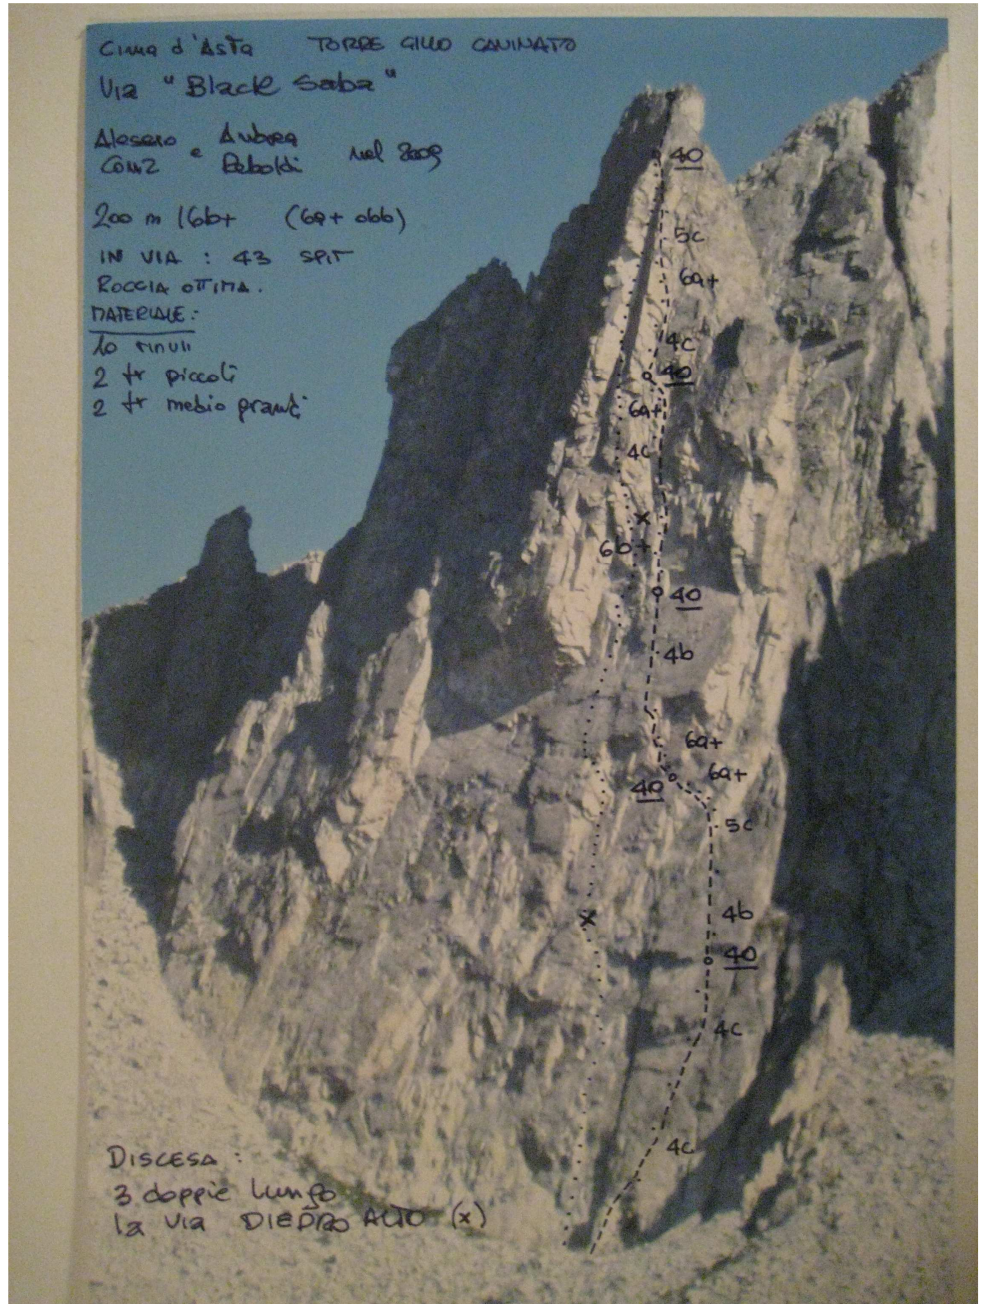 Cima d'Asta TORRE GILLO CAVINATO
Via "Black Saba"
Alessio Andrea
e nel 2009
Reboldi
200 m /6b+ (6a+ obb)
IN VIA : 43 SPIT
ROCCIA OTTIMA.
MATERIALE:
10 rinvii
2 fr piccoli
2 fr medio grandi
40
5c
6a+
4c
40
6a+
4c
x
6b+
40
4b
6a+
6a+
40
5c
4b
x
40
4c
4c
DISCESA :
3 doppie lungo
la via DIEDRO ALTO (x)